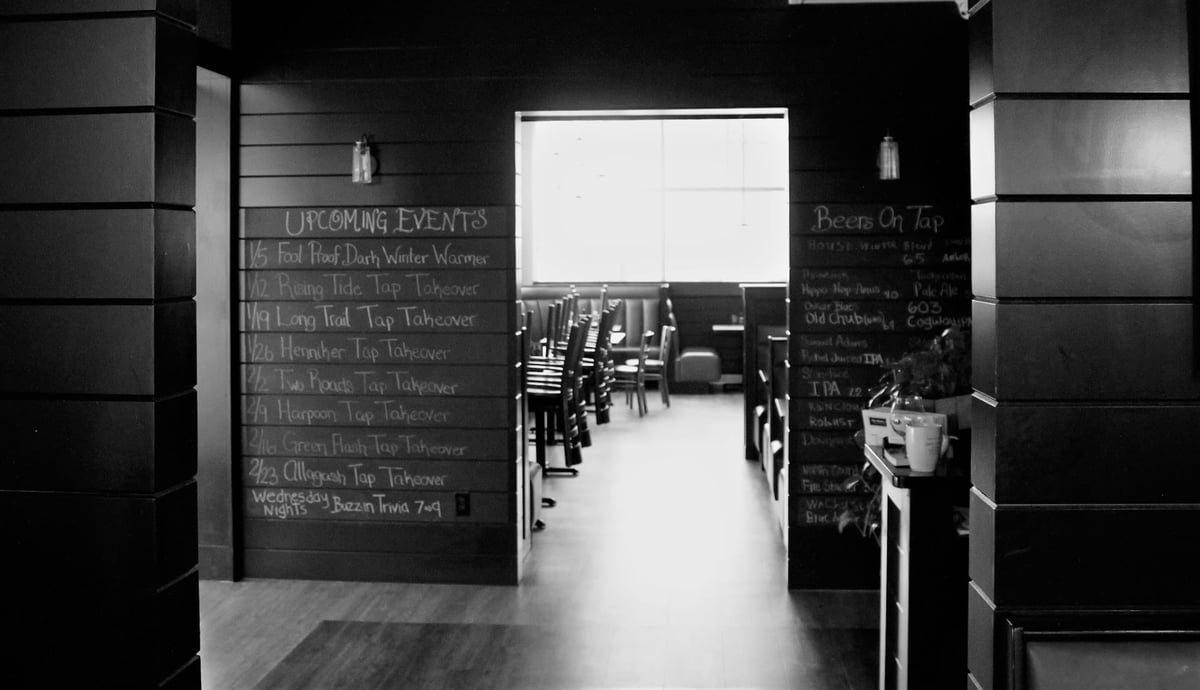 UPCOMING EVENTS
1/5 Fool Proof Dark Winter Warmer
1/12 Rising Tide Tap Takeover
1/19 Long Trail Tap Takeover
1/26 Henniker Tap Takeover
2/2 Two Roads Tap Takeover
2/9 Harpoon Tap Takeover
2/16 Green Flash Tap Takeover
2/23 Allagash Tap Takeover
Wednesday Nights Buzzin Trivia 7-9
Beers On Tap
HOUSE Winter Blend
6.5
Hippo Hop Pale Ale
Oskar Blues 603
Old Chub Cogway IPA
Samuel Adams
Juiced IPA
IPA
Robust
North Count
Blue